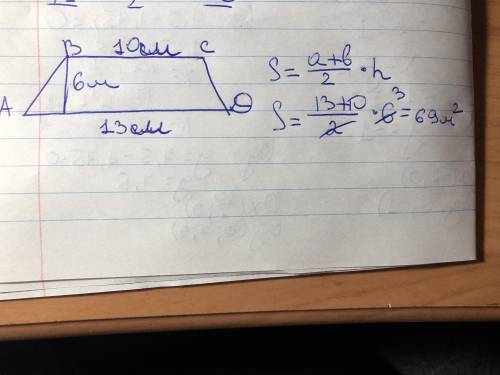 B 10см C
6м
A D
13см
S = a+b/2 · h
S = 13+10/2 · 6 3 = 69м²